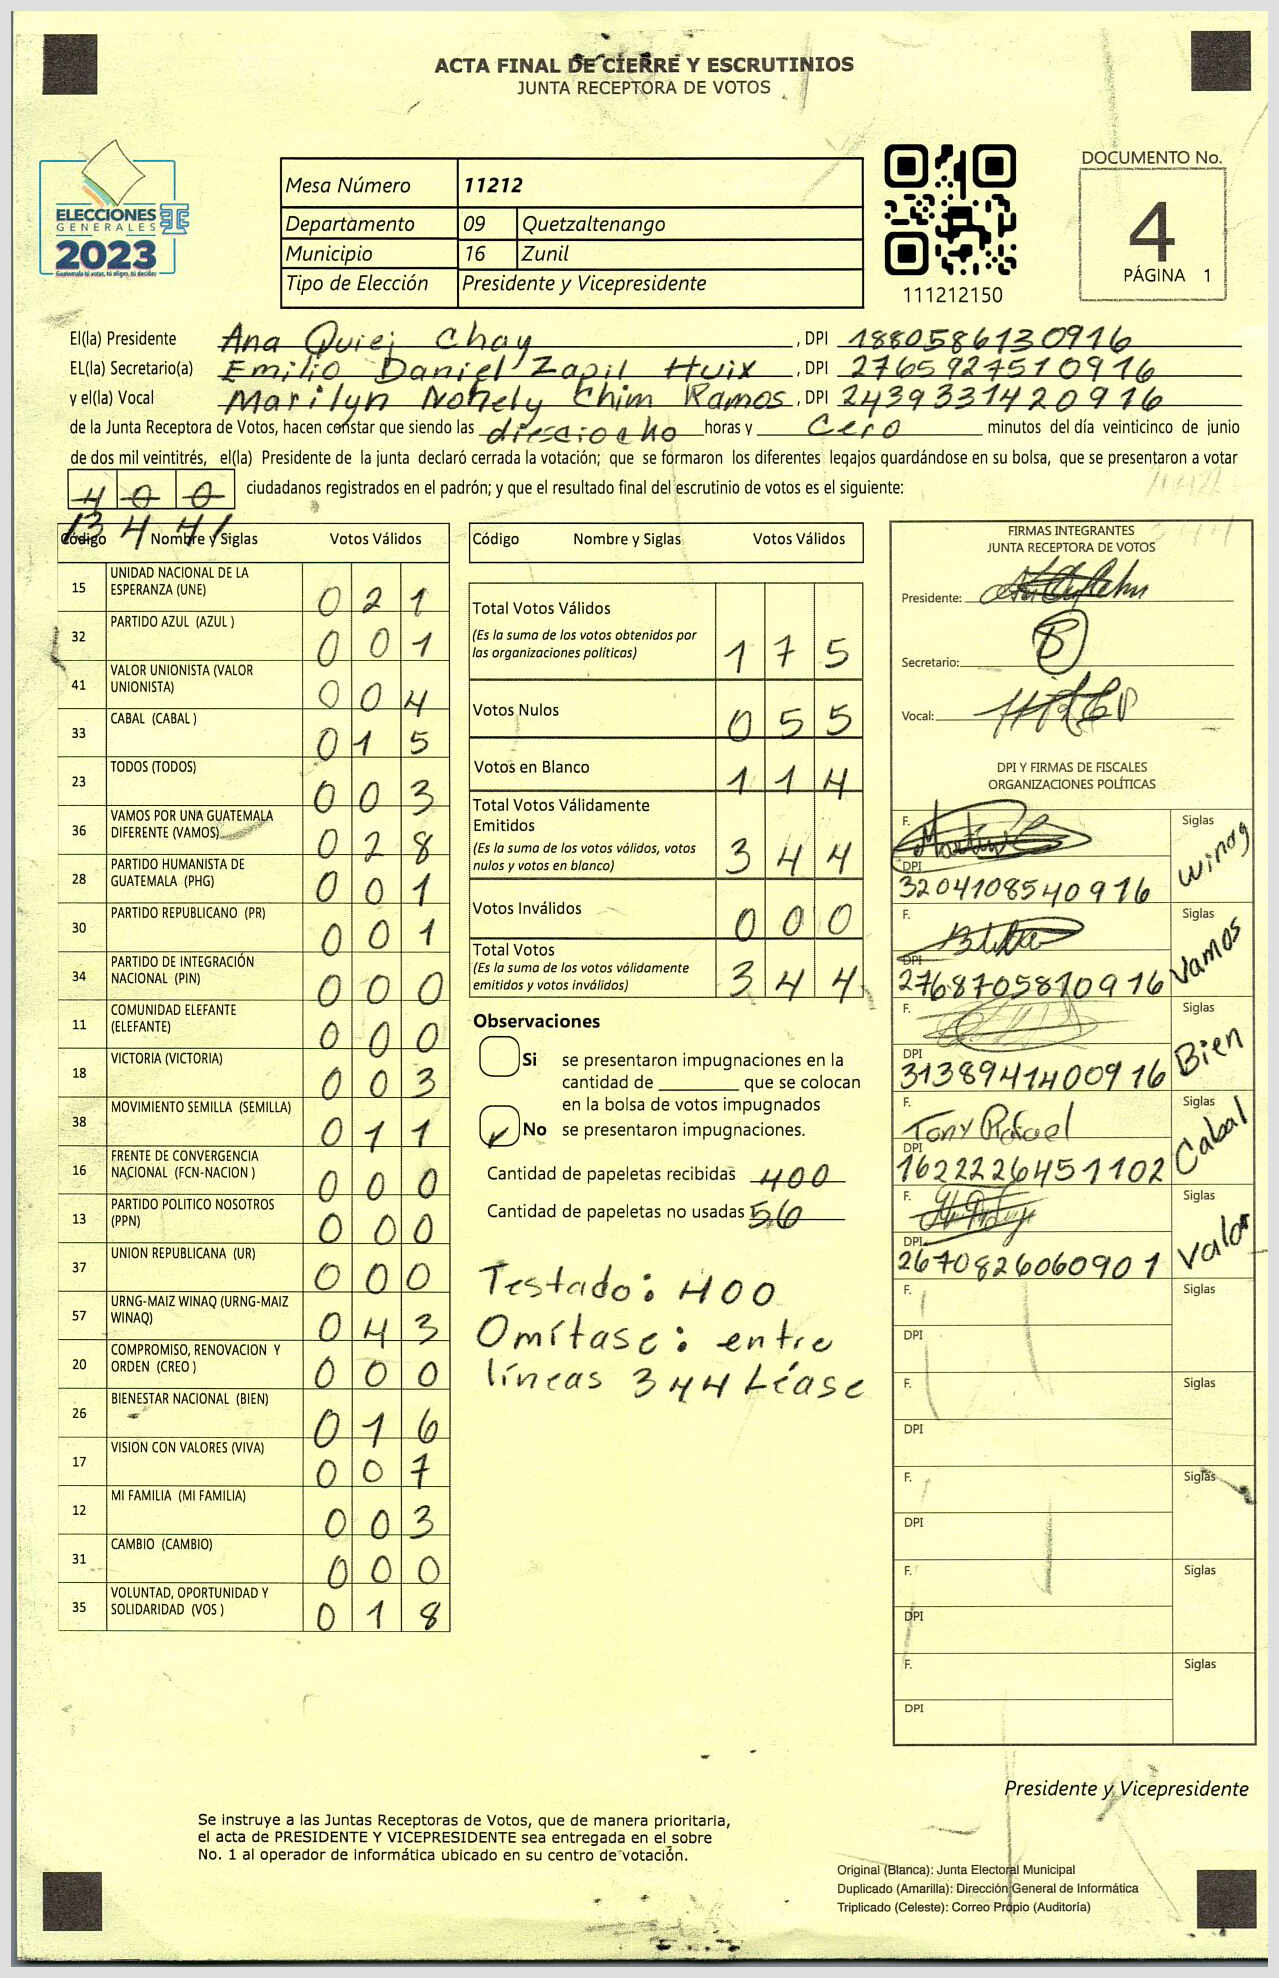 ACTA FINAL DE CIERRE Y ESCRUTINIOS
JUNTA RECEPTORA DE VOTOS
ELECCIONES
GENERALES
2023
Guatemala tú votas, tú eliges, tú decides
Mesa Número 11212
Departamento 09 Quetzaltenango
Municipio 16 Zunil
Tipo de Elección Presidente y Vicepresidente
111212150
DOCUMENTO No.
4
PÁGINA 1
El(la) Presidente Ana Quiej Chay, DPI 1880586130916
EL(la) Secretario(a) Emilio Daniel Zapil Huix, DPI 2765927510916
y el(la) Vocal Marilyn Nohely Chim Ramos, DPI 2439331420916
de la Junta Receptora de Votos, hacen constar que siendo las diesciocho horas y cero minutos del día veinticinco de junio
de dos mil veintitrés, el(la) Presidente de la junta declaró cerrada la votación; que se formaron los diferentes legajos guardándose en su bolsa, que se presentaron a votar
400 ciudadanos registrados en el padrón; y que el resultado final del escrutinio de votos es el siguiente:
/344/
Código Nombre y Siglas Votos Válidos
15 UNIDAD NACIONAL DE LA ESPERANZA (UNE) 021
32 PARTIDO AZUL (AZUL ) 001
41 VALOR UNIONISTA (VALOR UNIONISTA) 004
33 CABAL (CABAL ) 015
23 TODOS (TODOS) 003
36 VAMOS POR UNA GUATEMALA DIFERENTE (VAMOS) 028
28 PARTIDO HUMANISTA DE GUATEMALA (PHG) 001
30 PARTIDO REPUBLICANO (PR) 001
34 PARTIDO DE INTEGRACIÓN NACIONAL (PIN) 000
11 COMUNIDAD ELEFANTE (ELEFANTE) 000
18 VICTORIA (VICTORIA) 003
38 MOVIMIENTO SEMILLA (SEMILLA) 011
16 FRENTE DE CONVERGENCIA NACIONAL (FCN-NACION ) 000
13 PARTIDO POLITICO NOSOTROS (PPN) 000
37 UNION REPUBLICANA (UR) 000
57 URNG-MAIZ WINAQ (URNG-MAIZ WINAQ) 043
20 COMPROMISO, RENOVACION Y ORDEN (CREO ) 000
26 BIENESTAR NACIONAL (BIEN) 016
17 VISION CON VALORES (VIVA) 007
12 MI FAMILIA (MI FAMILIA) 003
31 CAMBIO (CAMBIO) 000
35 VOLUNTAD, OPORTUNIDAD Y SOLIDARIDAD (VOS ) 018
Código Nombre y Siglas Votos Válidos
Total Votos Válidos
(Es la suma de los votos obtenidos por
las organizaciones políticas) 175
Votos Nulos 055
Votos en Blanco 114
Total Votos Válidamente
Emitidos
(Es la suma de los votos válidos, votos
nulos y votos en blanco) 344
Votos Inválidos 000
Total Votos
(Es la suma de los votos válidamente
emitidos y votos inválidos) 344
Observaciones
Si se presentaron impugnaciones en la
cantidad de ________ que se colocan
en la bolsa de votos impugnados
No se presentaron impugnaciones.
Cantidad de papeletas recibidas 400
Cantidad de papeletas no usadas 56
Testado: 400
Omítase: entre
líneas 344 Léase
FIRMAS INTEGRANTES
JUNTA RECEPTORA DE VOTOS
Presidente:
Secretario:
Vocal:
DPI Y FIRMAS DE FISCALES
ORGANIZACIONES POLÍTICAS
F. Siglas winaq
DPI
3204108540916
F. Siglas Vamos
DPI
2768705810916
F. Siglas Bien
DPI
3138941400916
F. Tony Rafael Siglas Cabal
DPI
1622226451102
F. Siglas Valor
DPI
2670826060901
F. Siglas
DPI
F. Siglas
DPI
F. Siglas
DPI
F. Siglas
DPI
F. Siglas
DPI
Presidente y Vicepresidente
Se instruye a las Juntas Receptoras de Votos, que de manera prioritaria,
el acta de PRESIDENTE Y VICEPRESIDENTE sea entregada en el sobre
No. 1 al operador de informática ubicado en su centro de votación.
Original (Blanca): Junta Electoral Municipal
Duplicado (Amarilla): Dirección General de Informática
Triplicado (Celeste): Correo Propio (Auditoría)